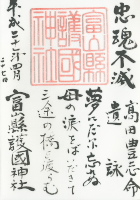 忠魂不滅
高田豊志命
遺詠
夢にだに忘れぬ
母の涙をばいだきて
三途の橋を渡らむ
富山縣護國神社
富山縣
護國
神社
平成二十七年四月